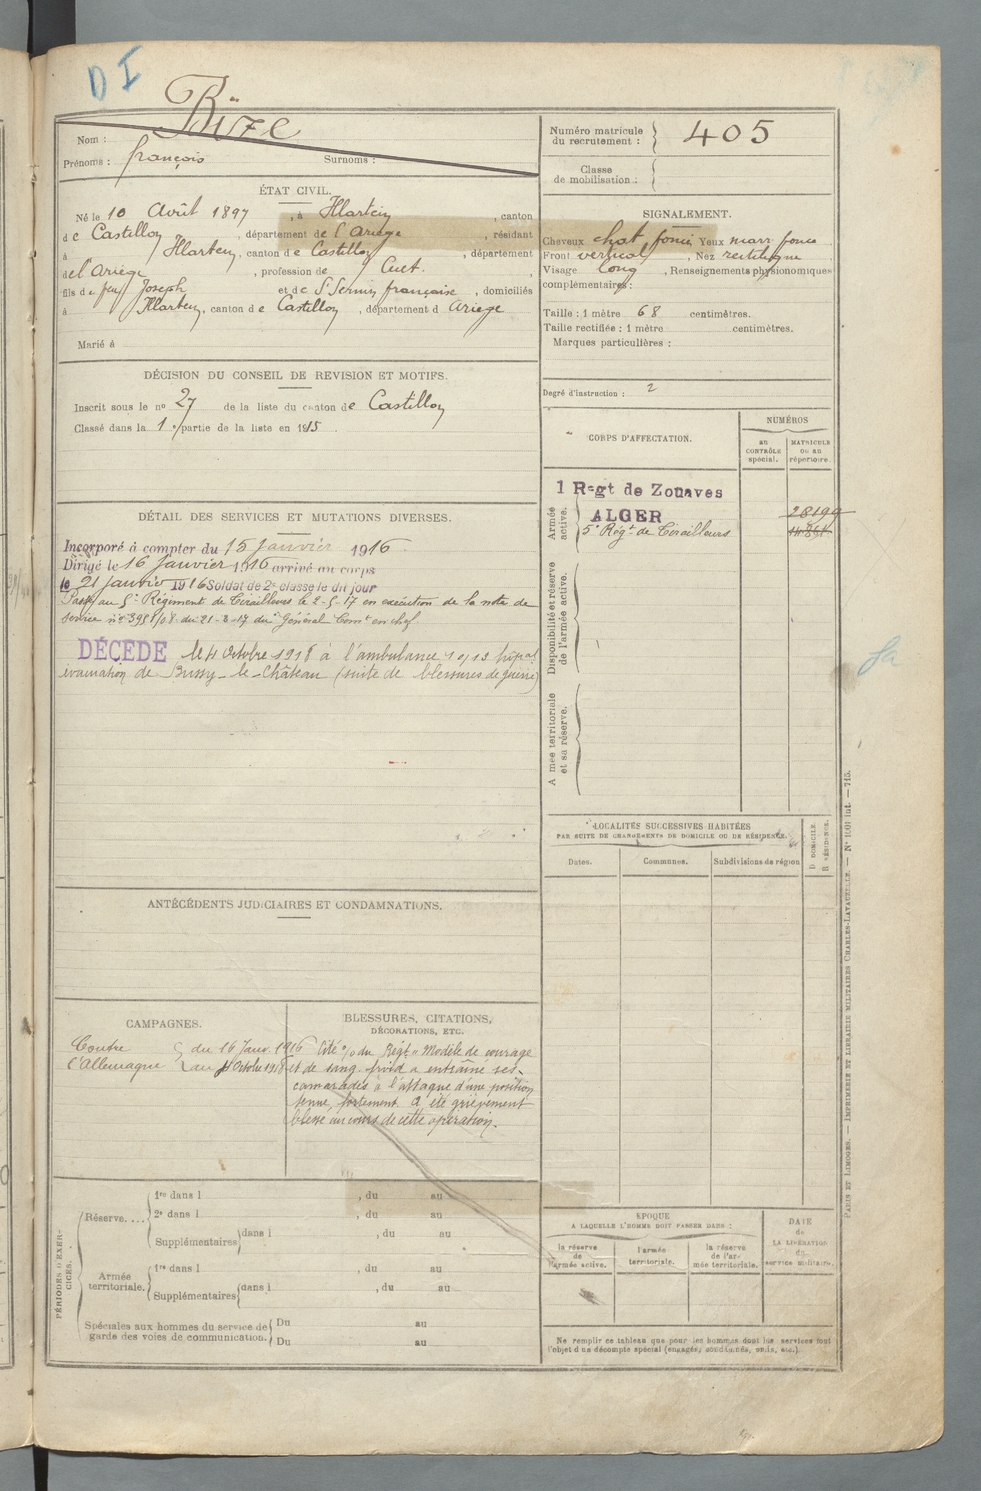 D I
Nom : Bize
Prénoms : françois Surnoms :
Numéro matricule du recrutement : 405
Classe de mobilisation :
ÉTAT CIVIL.
Né le 10 Août 1897, à Illartein, canton
de Castillon, département de l'Ariège, résidant
à Illartein, canton de Castillon, département
de l'Ariège, profession de Cult.
fils de feu Joseph et de S. Sernin française, domiciliés
à Illartein, canton de Castillon, département d Ariège
Marié à
SIGNALEMENT.
Cheveux chat foncé Yeux marr. foncé
Front vertical, Nez rectiligne
Visage long, Renseignements physionomiques
complémentaires :
Taille : 1 mètre 68 centimètres.
Taille rectifiée : 1 mètre centimètres.
Marques particulières :
Degré d'instruction : 2
DÉCISION DU CONSEIL DE REVISION ET MOTIFS.
Inscrit sous le no 27 de la liste du canton de Castillon
Classé dans la 1e partie de la liste en 1915
CORPS D'AFFECTATION.
NUMÉROS
AU CONTRÔLE spécial.
MATRICULE OU AU répertoire.
Armée active.
1 Regt de Zouaves
ALGER 28199
5e Régt de Tirailleurs
Disponibilité et réserve de l'armée active.
Armée territoriale et sa réserve.
DÉTAIL DES SERVICES ET MUTATIONS DIVERSES.
Incorporé à compter du 15 Janvier 1916.
Dirigé le 16 Janvier 1916 arrivé au corps
le 21 Janvier 1916 Soldat de 2e classe le dit jour
Passé au 5e Régiment de Tirailleurs le 2-5-17 en exécution de la note de
service no 3958/08 du 21-3-17 du Général Comt en chef.
DÉCÉDÉ le 4 Octobre 1918 à l'ambulance 10/13 hôpal
évacuation de Bussy-le-Château (suite de blessures de guerre)
LOCALITÉS SUCCESSIVES HABITÉES
PAR SUITE DE CHANGEMENTS DE DOMICILE OU DE RÉSIDENCE.
Dates. Communes. Subdivisions de région
D. DOMICILE. R. RÉSIDENCE.
ANTÉCÉDENTS JUDICIAIRES ET CONDAMNATIONS.
CAMPAGNES.
Contre l'Allemagne du 16 Janv. 1916
au 4 Octobre 1918
BLESSURES, CITATIONS,
DÉCORATIONS, ETC.
Cité o/o du Régt "Modèle de courage
et de sang froid a entraîné ses
camarades à l'attaque d'une position
tenue fortement. A été grièvement
blessé au cours de cette opération.
PÉRIODES D'EXERCICES.
Réserve....
1re dans l , du au
2e dans l , du au
Supplémentaires dans l , du au
Armée territoriale.
1re dans l , du au
Supplémentaires dans l , du au
Spéciales aux hommes du service de garde des voies de communication.
Du au
Du au
ÉPOQUE
A LAQUELLE L'HOMME DOIT PASSER DANS :
la réserve de l'armée active.
l'armée territoriale.
la réserve de l'armée territoriale.
DATE
DE LA LIBÉRATION
du
service militaire.
Ne remplir ce tableau que pour les hommes dont les services font
l'objet d'un décompte spécial (engagés, condamnés, omis, etc.).
PARIS ET LIMOGES. — IMPRIMERIE ET LIBRAIRIE MILITAIRES CHARLES-LAVAUZELLE.